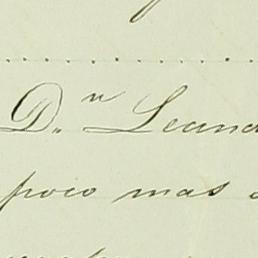 D.n Leand
poco mas